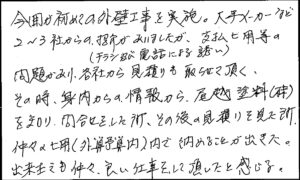 今回が初めての外壁工事を実施。大手メーカーなど
2～3社からの提案がありましたが、支払い費用等の
(チラシ及び電話による誘い)
問題があり、各社から見積りも取らせて頂く。
その時、身内からの情報から、尾越塗料(株)
を知り、問合せをした所、その後の見積りを見た所、
仲々の費用(外算予算内)内で納めることが出来た。
出来ばえも仲々、良い仕事をして頂したと感じる。